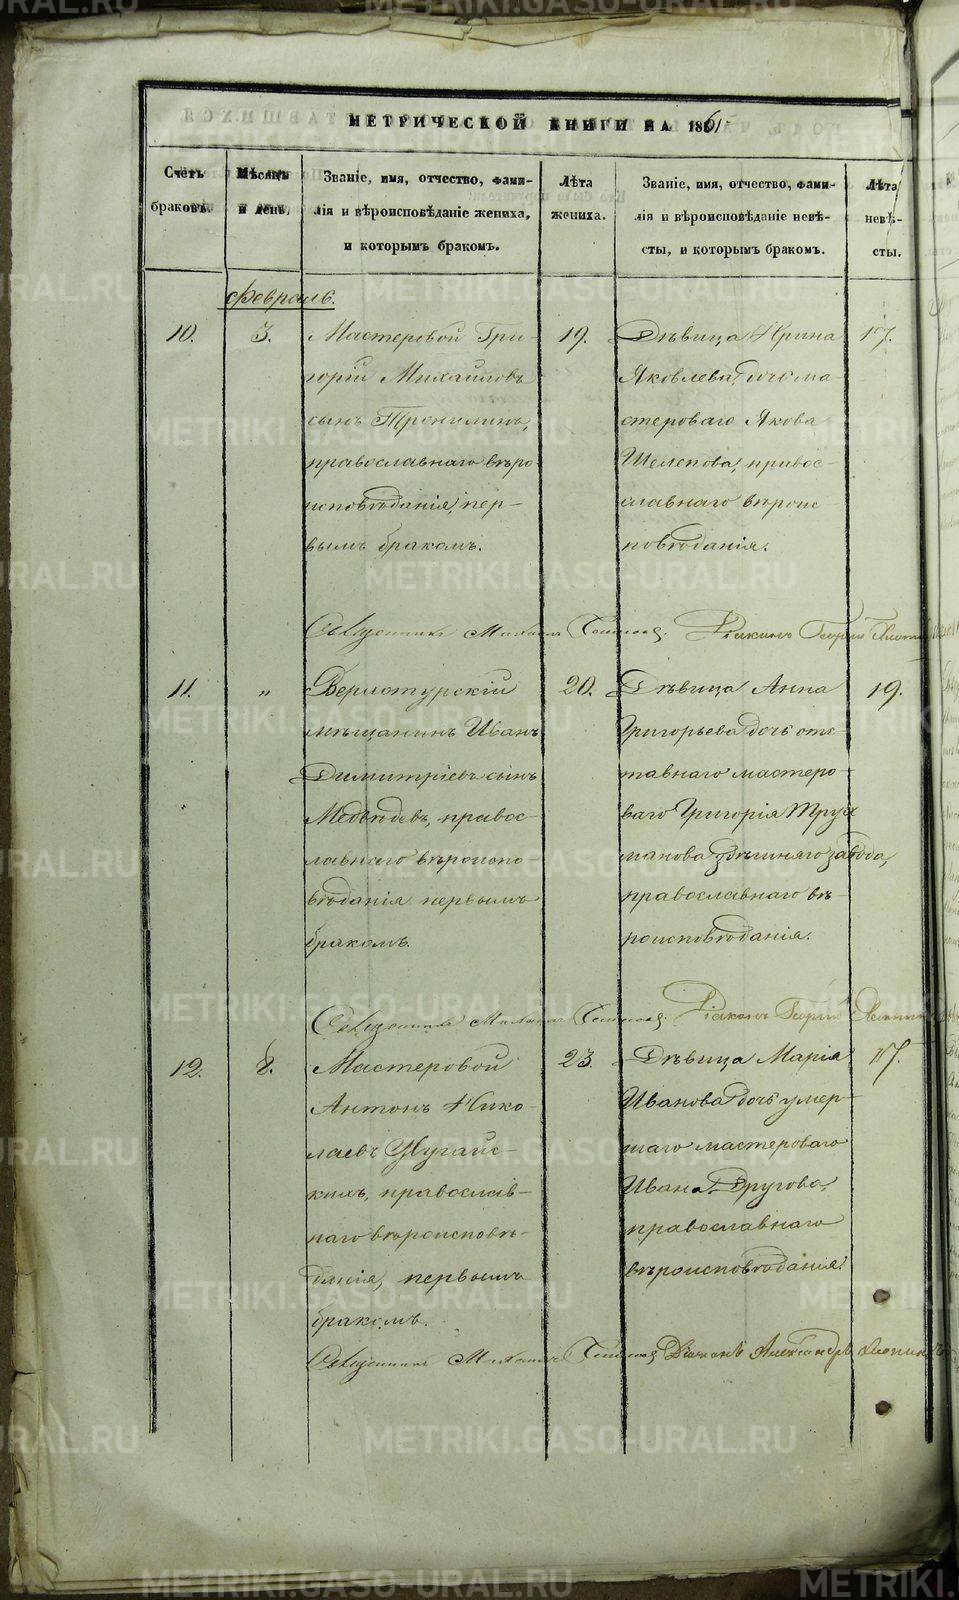 МЕТРИЧЕСКОЙ КНИГИ НА 1861
Счетъ браковъ.
Мѣсяцъ и день.
Званіе, имя, отчество, фами-
лія и вѣроисповѣданіе жениха,
и которымъ бракомъ.
Лѣта жениха.
Званіе, имя, отчество, фами-
лія и вѣроисповѣданіе невѣ-
сты, и которымъ бракомъ.
Лѣта невѣ-
сты.
Февраль.
10.
3.
Мастеровой Гри-
горій Михайловъ
сынъ
православнаго вѣро
исповѣданія, пер-
вымъ бракомъ.
19.
Дѣвица Ирина
Яковлева, дочь ма-
стероваго Якова
Шелепова, правос-
славнаго вѣроис-
повѣданія.
17.
Священникъ Михаилъ Діаконъ Георгій
11.
"
Верхотурскій
мѣщанинъ Иванъ
Димитріевъ сынъ
Медвѣдевъ, правос-
лавнаго вѣроиспо
вѣданія первымъ
бракомъ.
20.
Дѣвица Анна
Григорьева дочь отс-
тавнаго мастеро-
ваго Григорія Трух
манова здѣшняго завода,
православнаго вѣ-
роисповѣданія.
19.
Священникъ Михаилъ Діаконъ Георгій
12.
8.
Мастеровой
Антонъ Нико-
лаевъ
православ-
наго вѣроисповѣ-
данія, первымъ
бракомъ.
23.
Дѣвица Марія
Иванова дочь умер-
шаго мастероваго
Ивана Другова,
православнаго
вѣроисповѣданія.
17.
Священникъ Михаилъ Діаконъ Александръ
METRIKI.GASO-URAL.RU